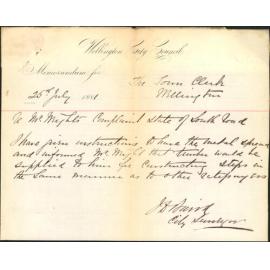 Wellington City Council
Memorandum for
The Town Clerk
25th July 1881 Wellington
To Mr Mights Complaint State of South Road
I have given instructions to have the metal spread
and informed Mr Might that timber would be
supplied to him for constructing steps in
the same manner as to other ratepayers
J D Baird
City Surveyor